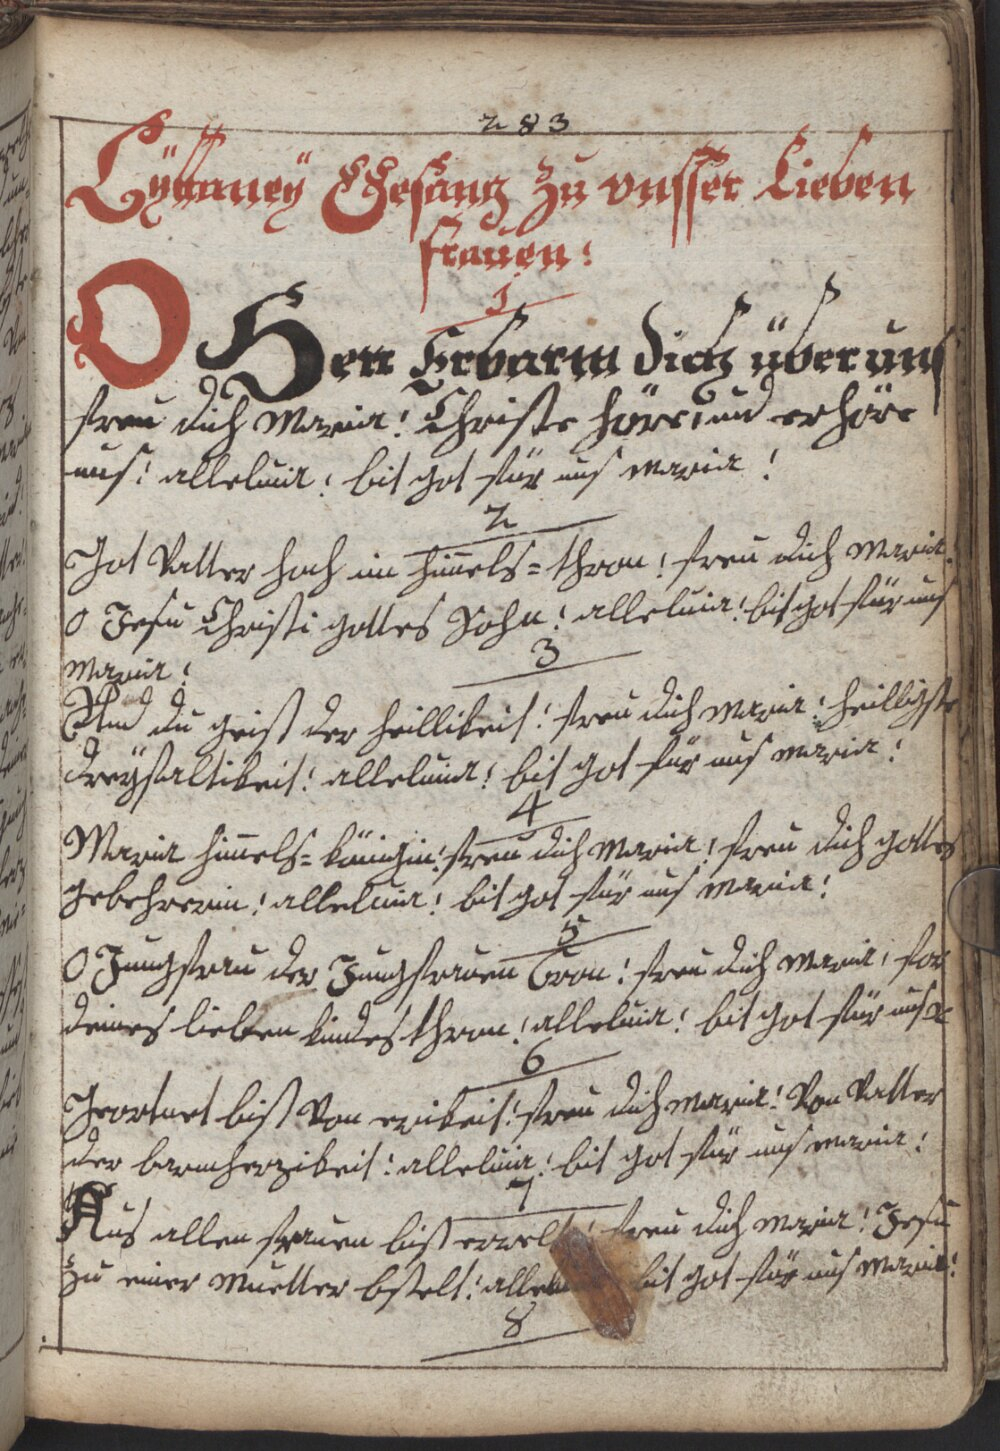 283
Lÿttaneÿ Gesang zu vnsser Lieben
frauen:
1
O Herr Erbarm dich über uns
freu dich Maria! Christe höre, und erhöre
uns! alleluia! bit got für uns Maria!
2
Got Vatter hoch im him̄els=thron! freu dich Maria!
O Jesu Christi gottes Sohn! alleluia! bit got für uns
Maria!
3
Und du geist der heillikeit! freu dich Maria! heilligste
dreÿfaltikeit! alleluia! bit got für uns Maria!
4
Maria him̄els=königin! freu dich Maria! freu dich gottes
gebehrerin! alleluia! bit got für uns Maria!
5
O Jungfrau der Jungfrauen Cron! freu dich Maria! for
deines lieben kindes thron! alleluia! bit got für uns
6
Geortnet bist Von ewikeit! freu dich Maria! Von Vatter
der barmherzikeit! alleluia! bit got für uns Maria!
7
Aus allen frauen bist erwelt! freu dich Maria! Jesu
zu einer Muetter bstelt! bit got für uns Maria!
8